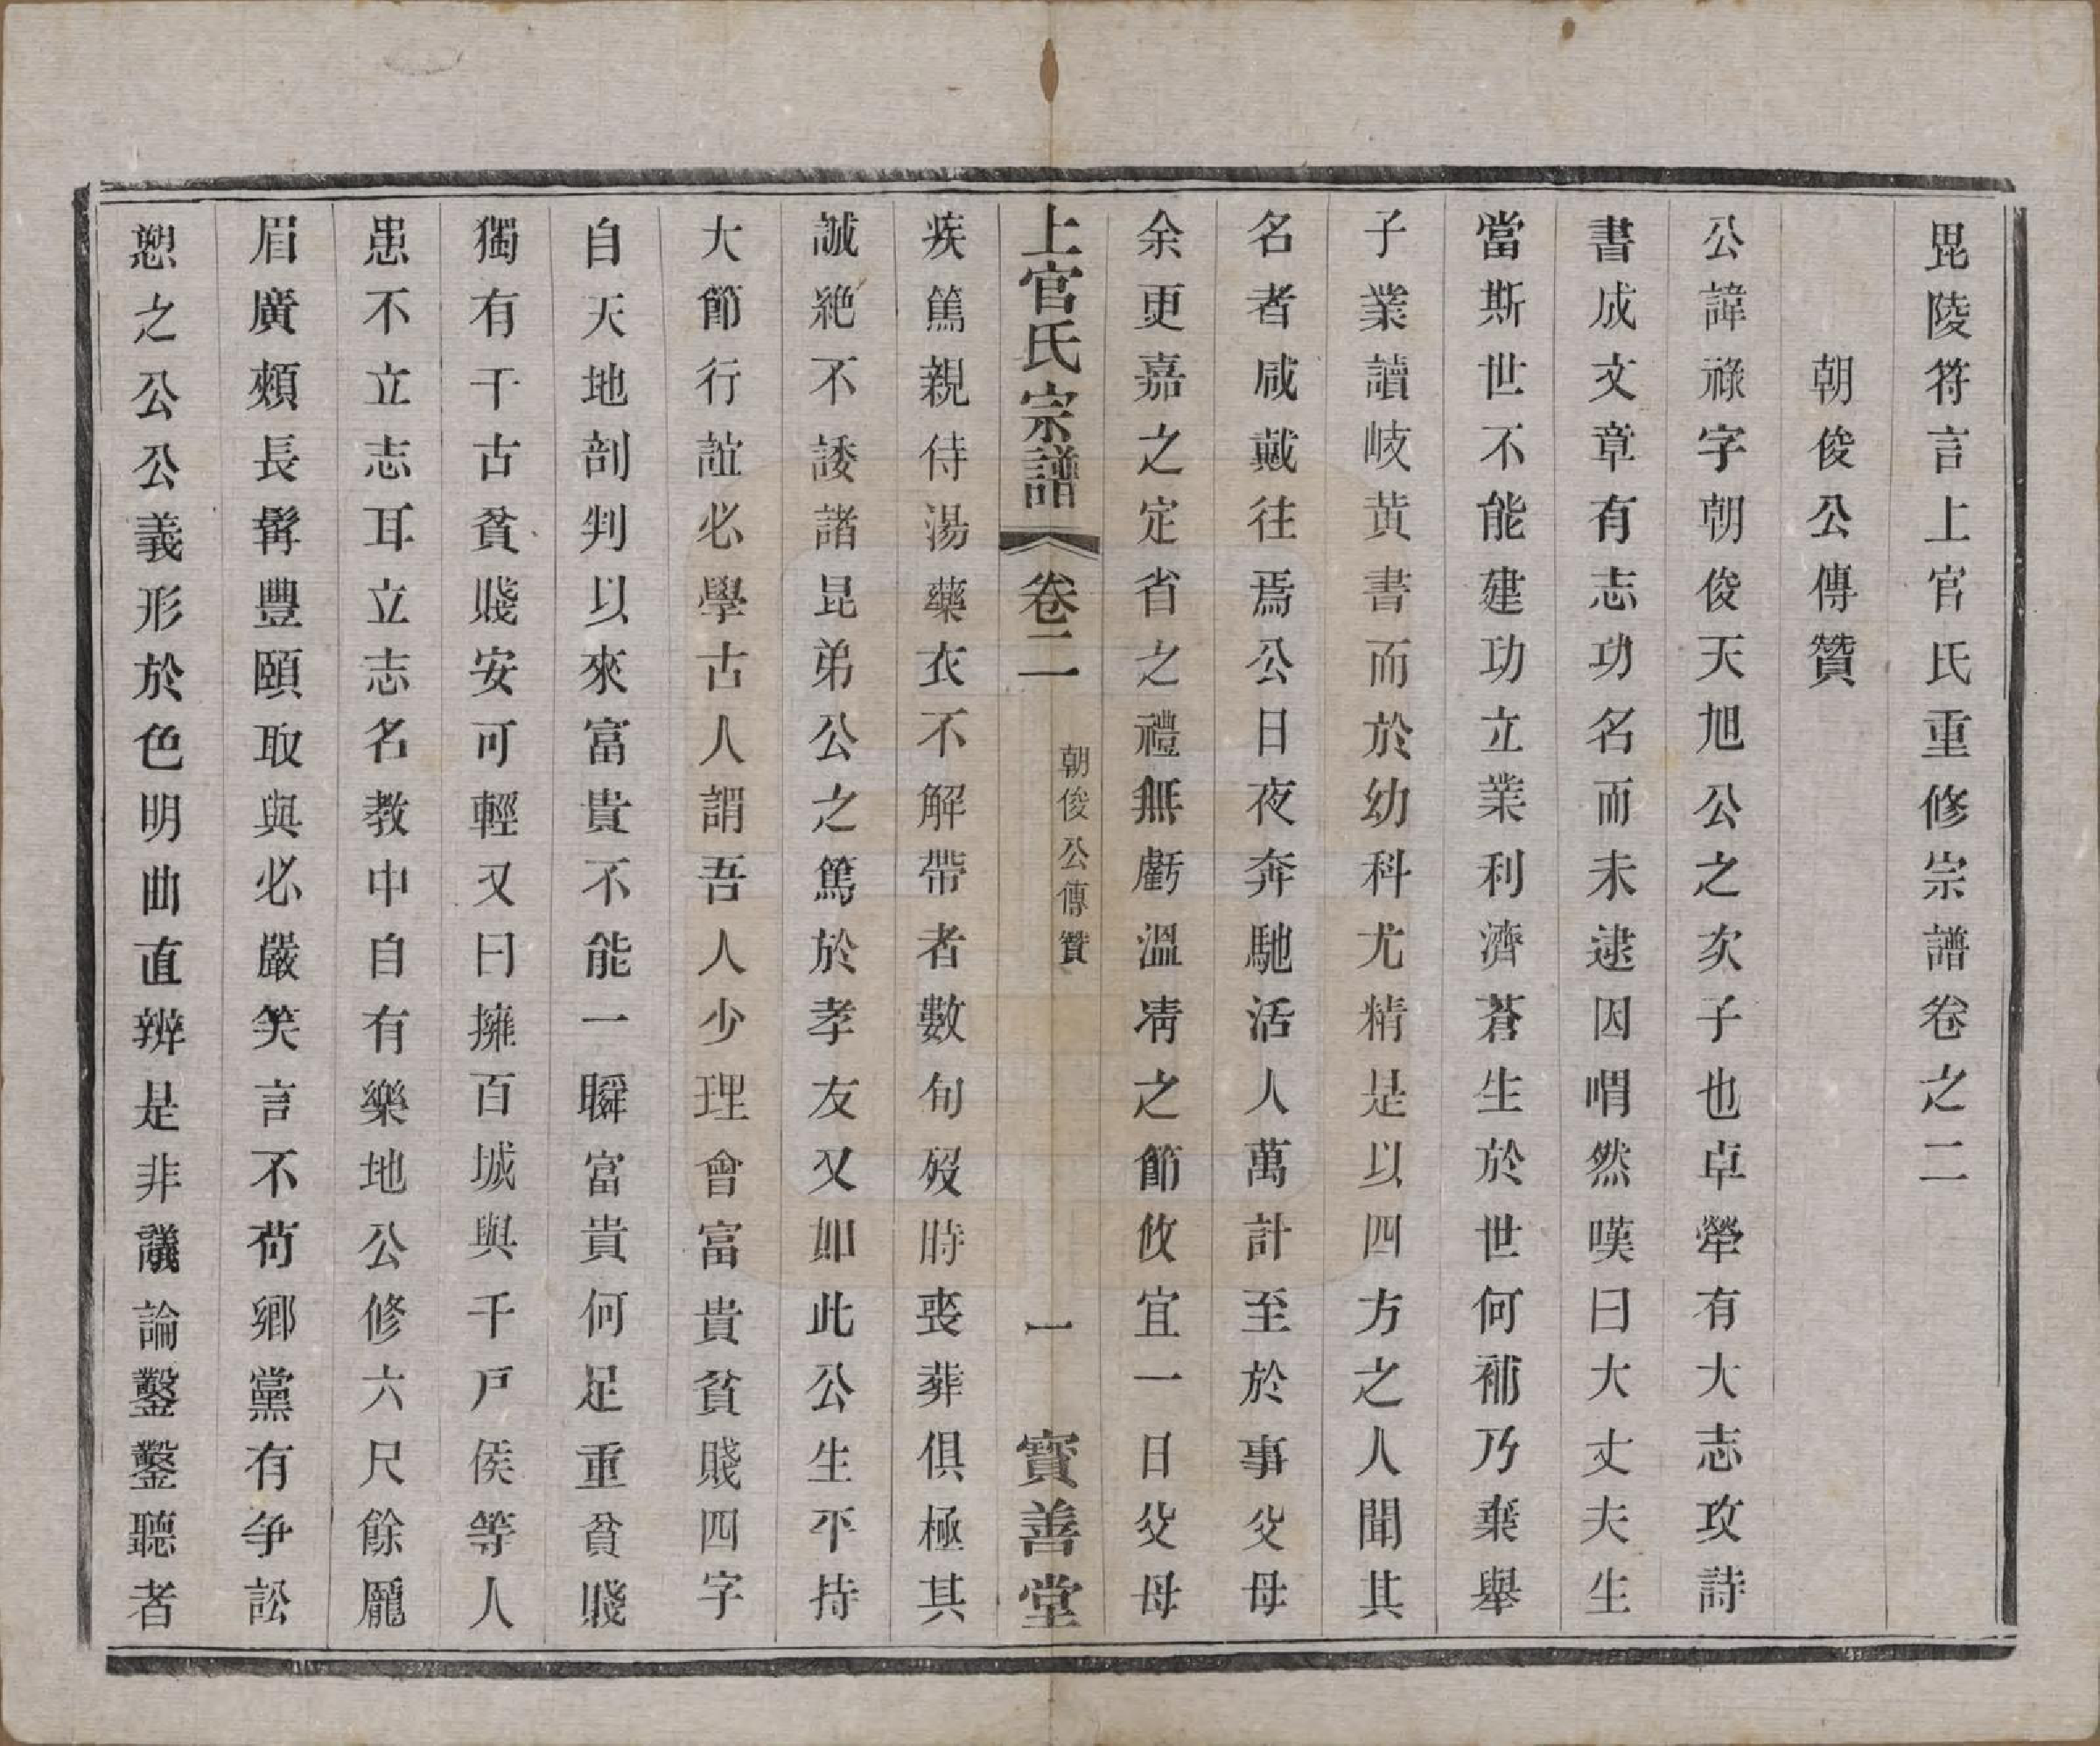 毘陵符言上官氏重修宗譜卷之二
朝俊公傳贊
公諱祿字朝俊天旭公之次子也卓犖有大志攻詩
書成文章有志功名而未逮因喟然嘆曰大丈夫生
當斯世不能建功立業利濟蒼生於世何補乃棄舉
子業讀岐黃書而於幼科尤精是以四方之人聞其
名者咸戴往焉公日夜奔馳活人萬計至於事父母
余更嘉之定省之禮無虧溫凊之節攸宜一日父母
上官氏宗譜 卷二 朝俊公傳贊 一 寶善堂
疾篤親侍湯藥衣不解帶者數旬歿時喪葬俱極其
誠絶不諉諸昆弟公之篤於孝友又如此公生平持
大節行誼必學古人謂吾人少理會富貴貧賤四字
自天地剖判以來富貴不能一瞬富貴何足重貧賤
獨有千古貧賤安可輕又曰擁百城與千戸侯等人
患不立志耳立志名教中自有樂地公修六尺餘龎
眉廣頰長髯豐頤取與必嚴笑言不苟鄉黨有爭訟
愬之公公義形於色明曲直辨是非議論鑿鑿聽者